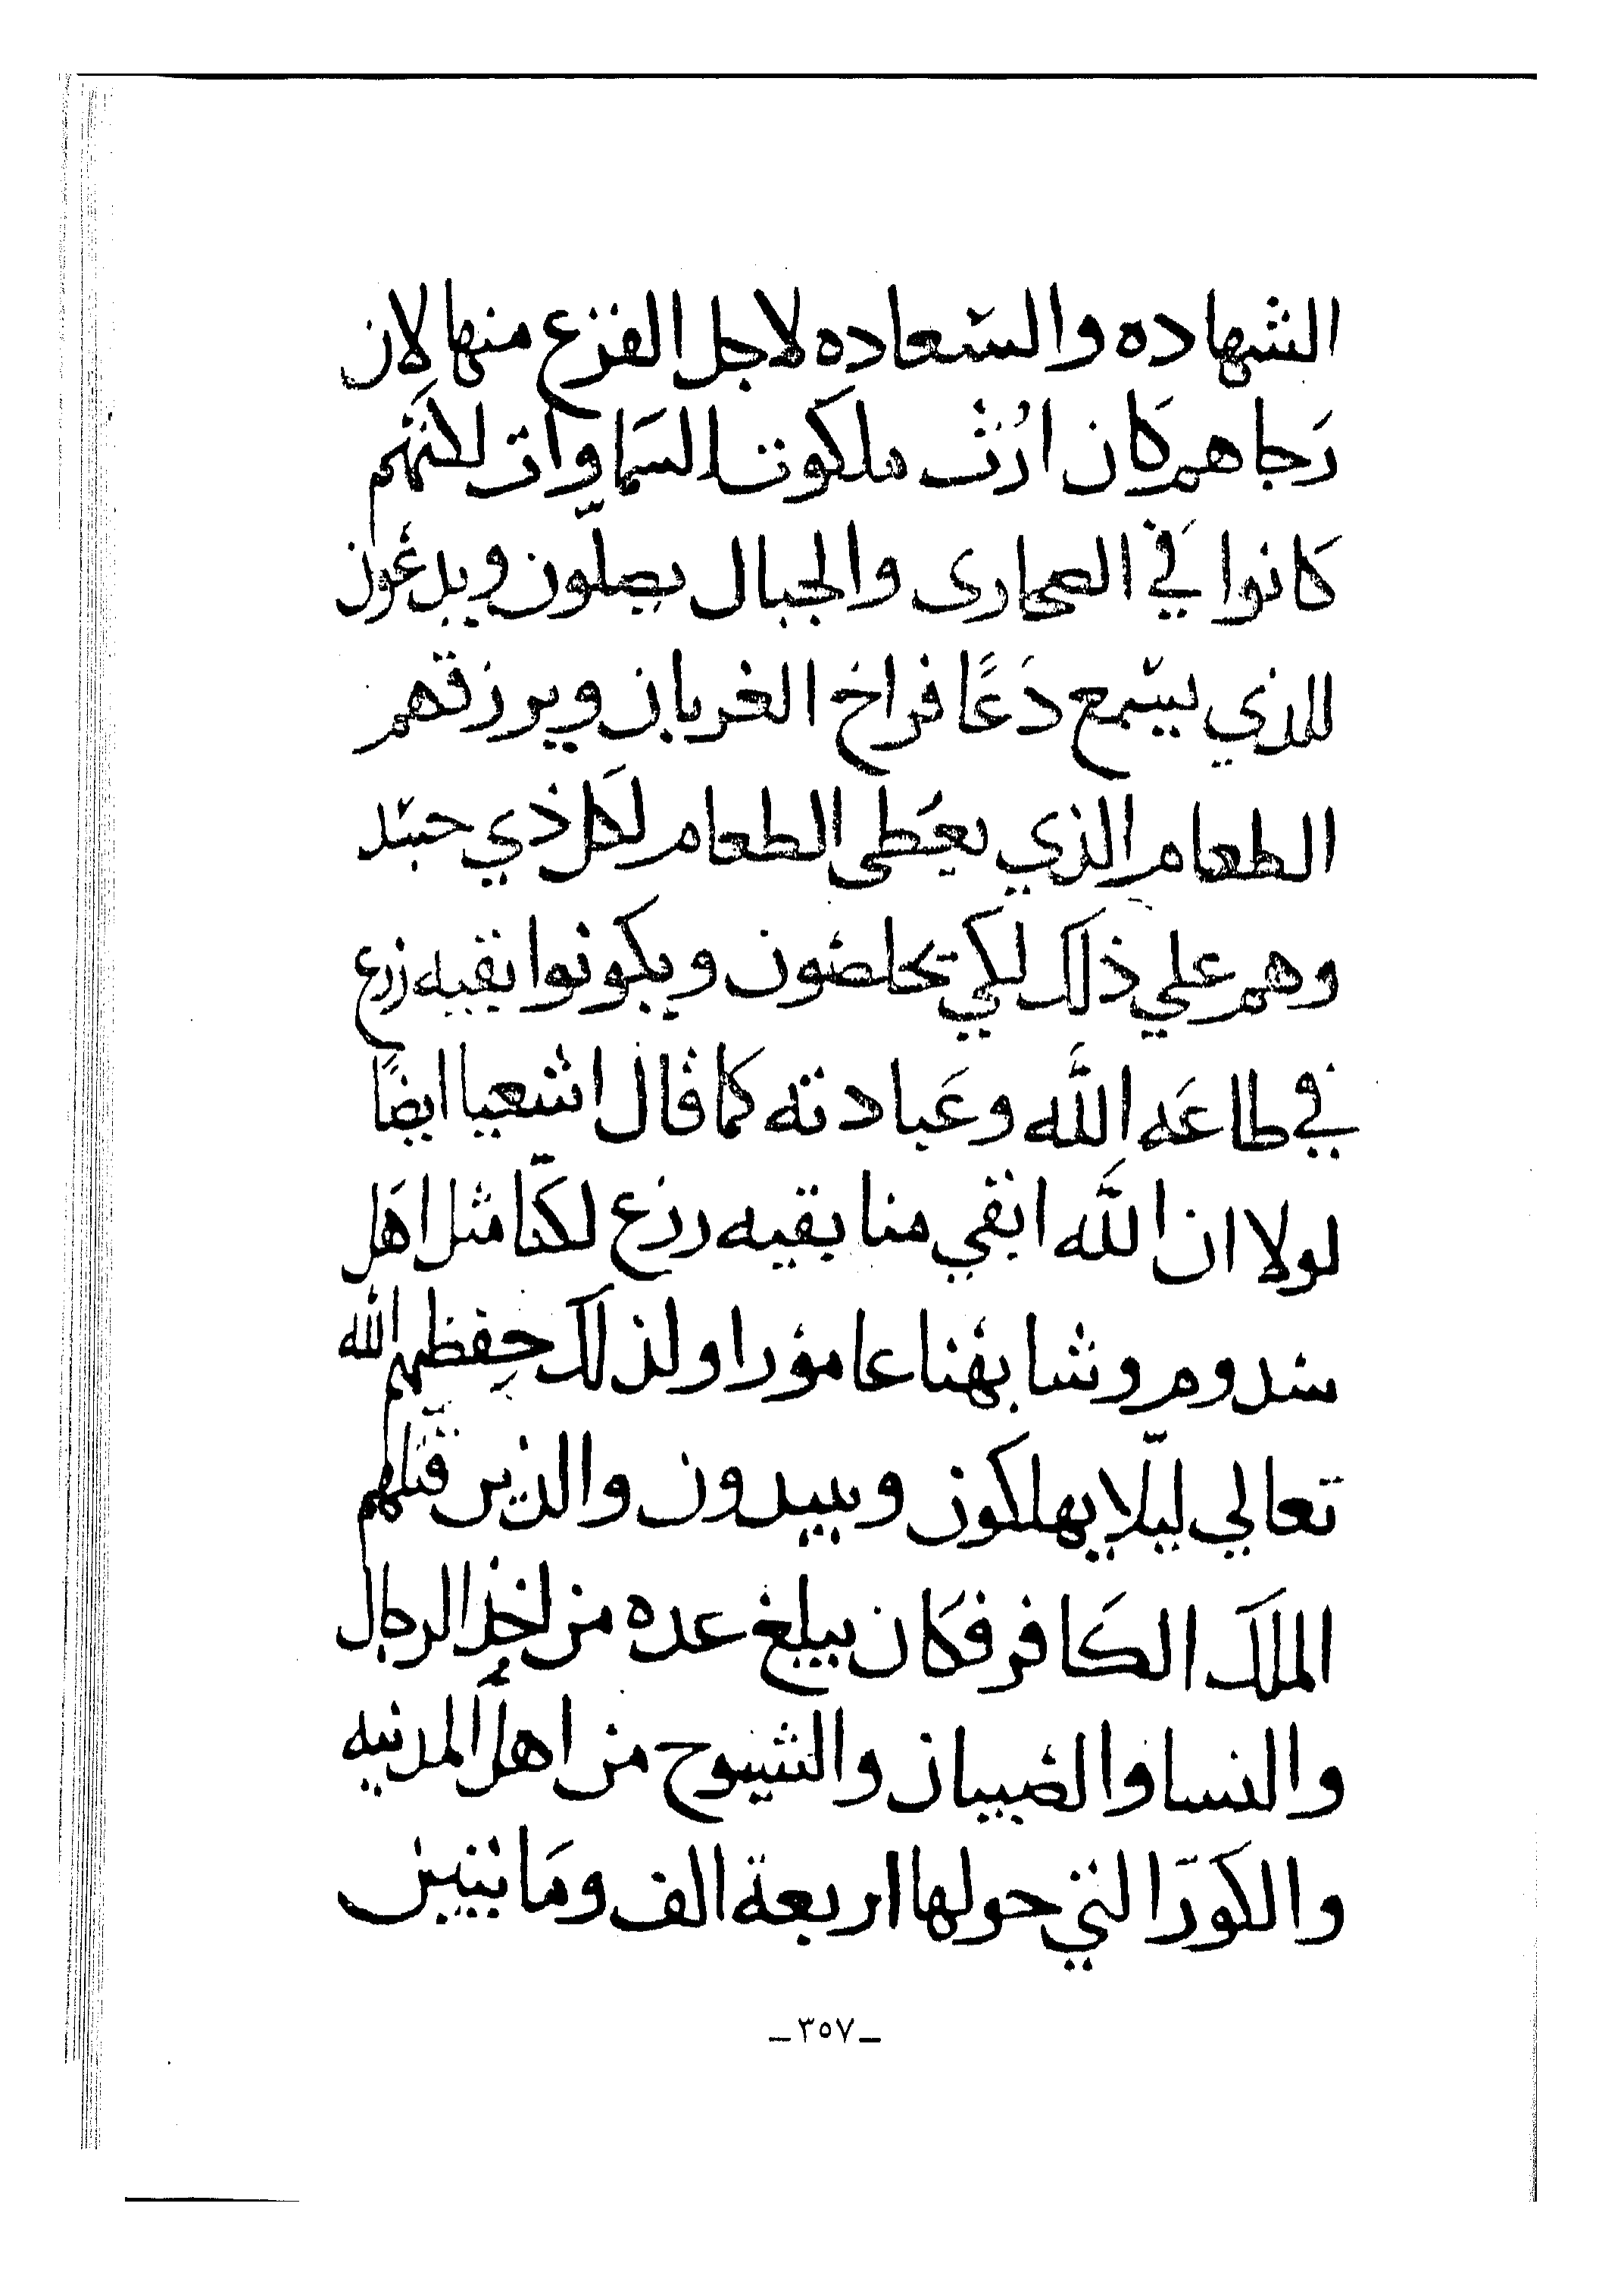 الشهاده والسعاده لاجل الفزع منها لان
رَجاهم كان ارُث ملكوت السَماوات لانهم
كانوا في الصحارى والجبال يصلّون ويدعون
للذي يسمع دَعًا فراخ الغربان ويرزقهم
الطعام الذي يعَطى الطعام لكل ذي جسد
وهم علي ذلك لكي يخلصون ويكونوا بقيه زرع
في طاعَه الله وعَبادته كما قال اشعيا ايضًا
لولا ان الله ابقي منا بقيه زرع لكنّا مثل اهَل
سدوم وشابهنا عامورا ولذلك حفظهم الله
تعالي ليلّا يهلكون ويبيدون والذين قتلهم
الملك الكافر فكان يبلغ عده من اخذ الرجال
والنسا والصبيان والشيوح من اهل المدنيه
والكوَرَ التي حولها اربعة الف ومَانيين
ـ ٣٥٧ ـ